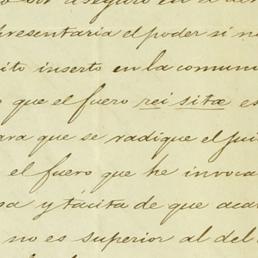 o por aseguro en el acu
presentaria el poder si no
ito inserto en la comuni
o que el fuero rei sitæ es
ara que se radique el jui
el fuero que he invoca
sa y tácita de que aca
no es superior al del